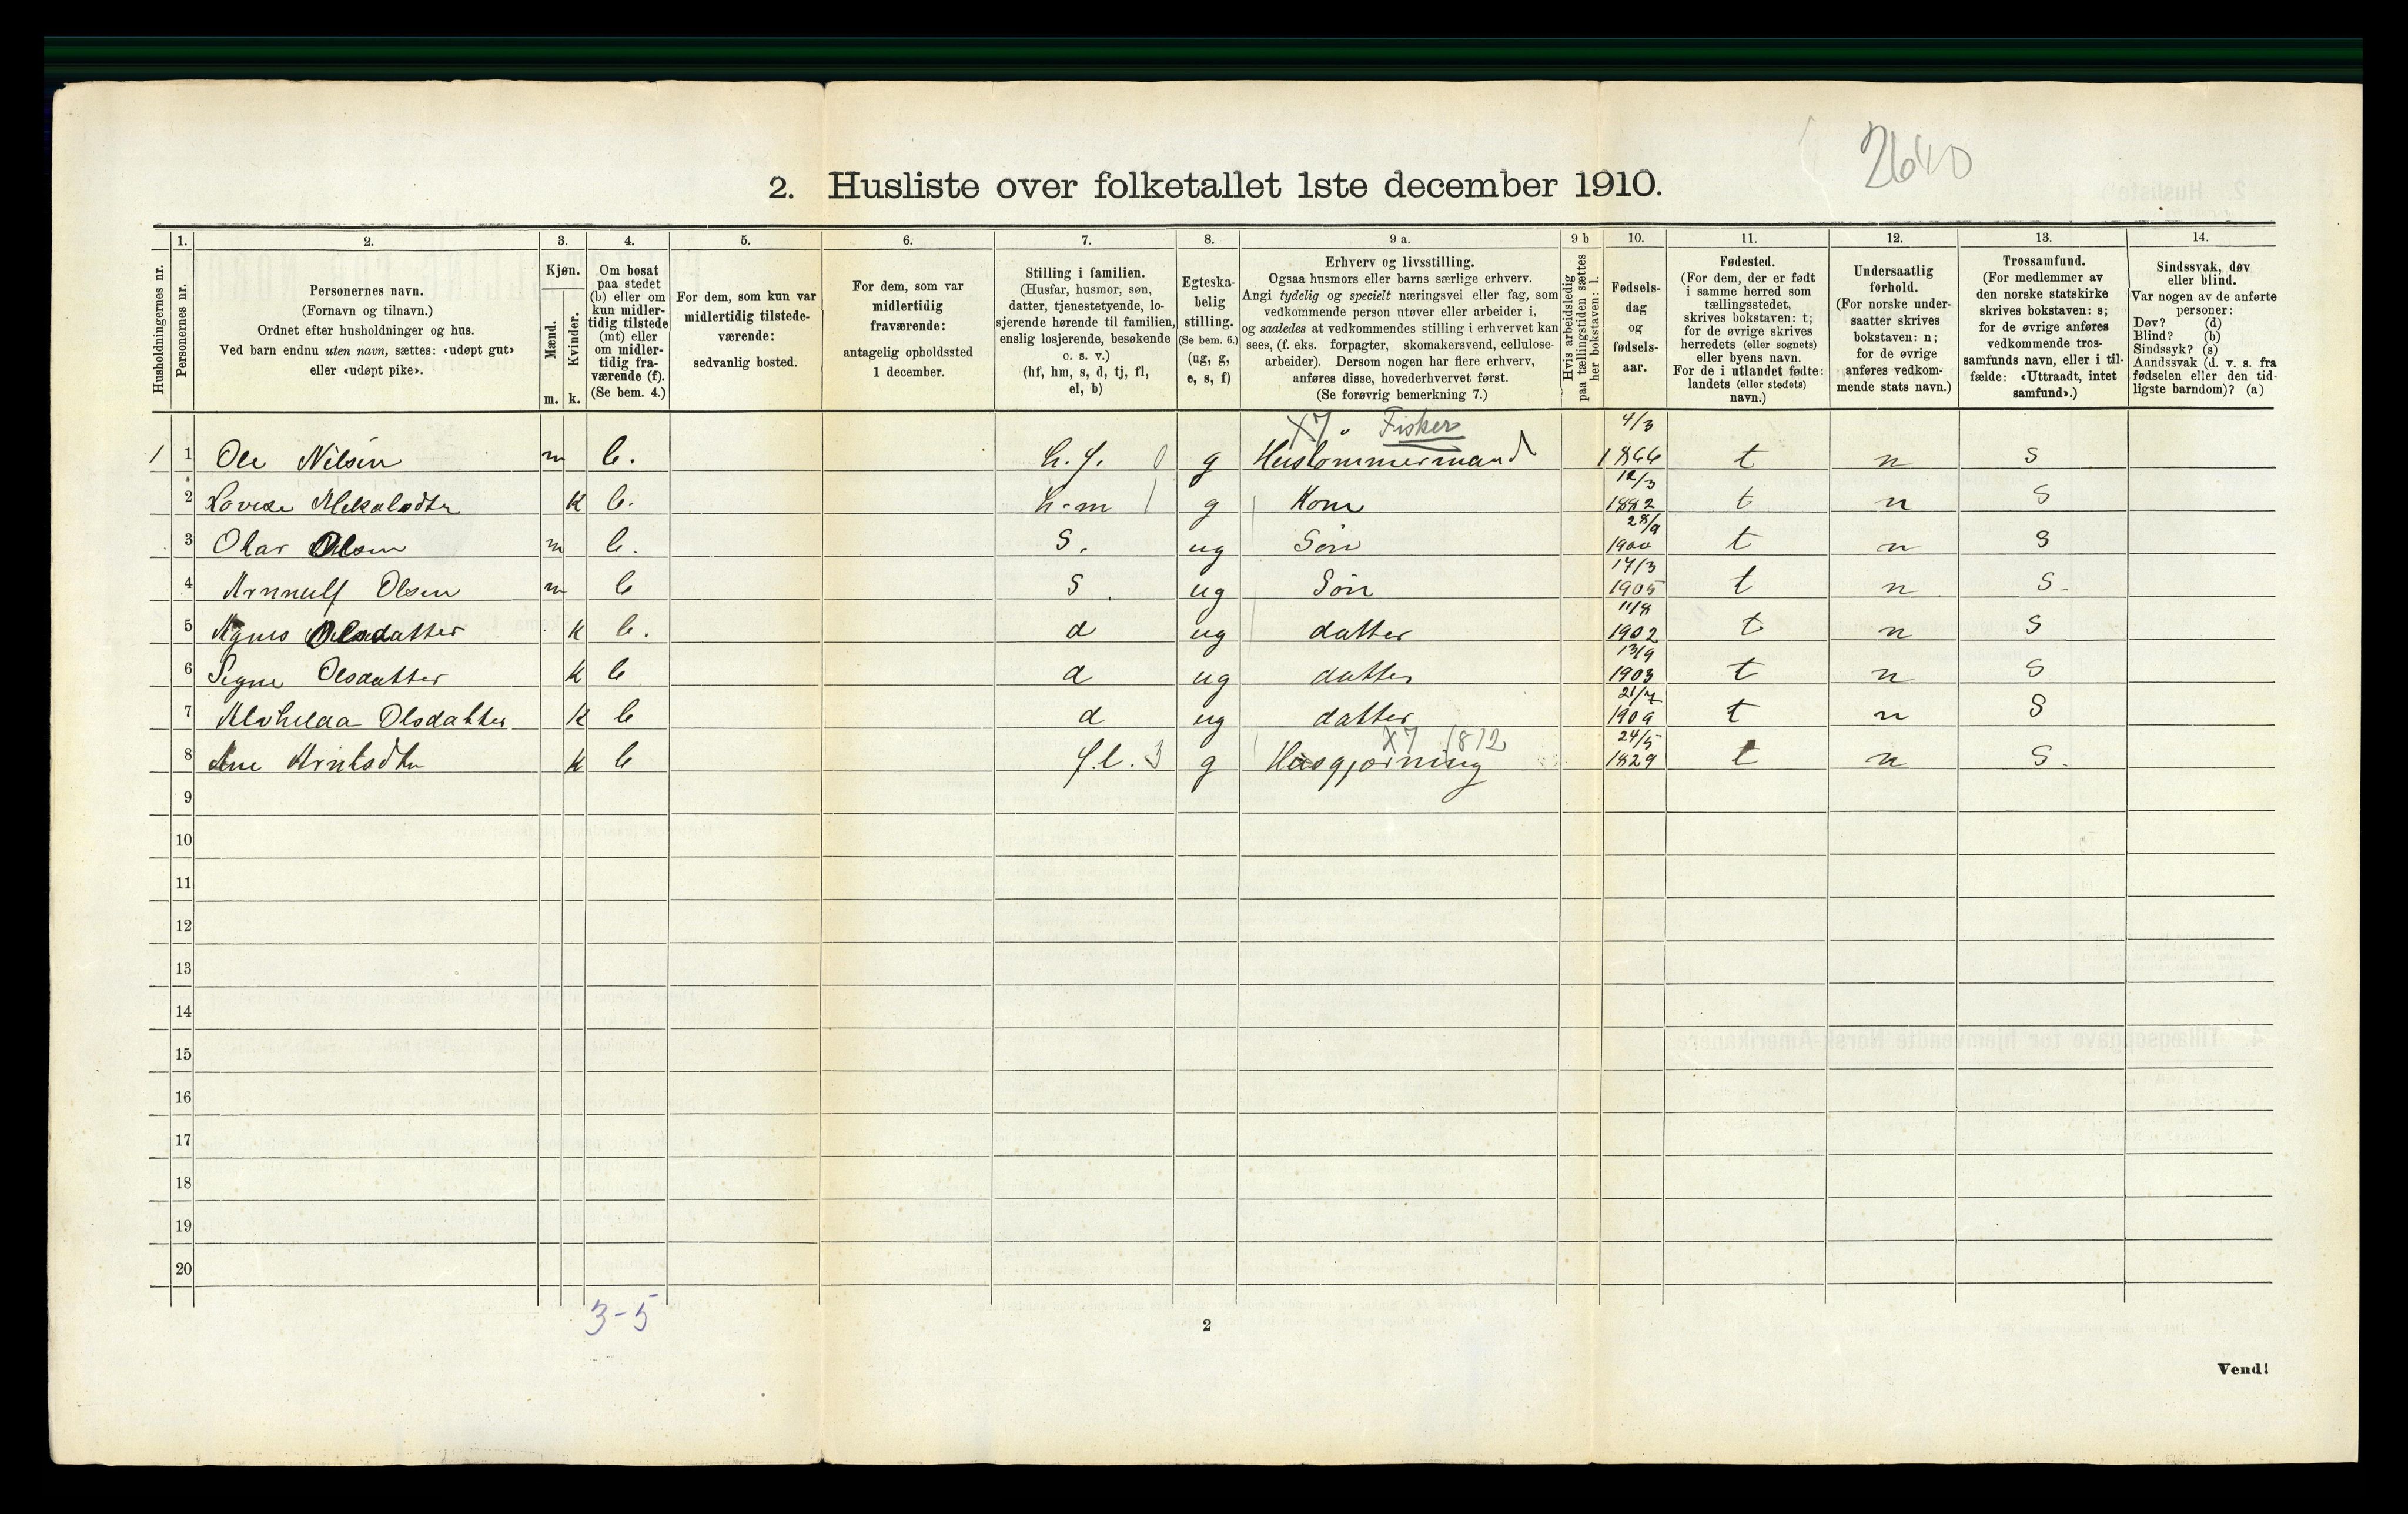 2640
2. Husliste over folketallet 1ste december 1910.
1. 2. 3. 4. 5. 6. 7. 8. 9 a. 9 b 10. 11. 12. 13. 14.
Husholdningernes nr.
Personernes nr.
Personernes navn.
(Fornavn og tilnavn.)
Ordnet efter husholdninger og hus.
Ved barn endnu uten navn, sættes: «udøpt gut»
eller «udøpt pike».
Kjøn.
Mænd.
Kvinder.
m. k.
Om bosat
paa stedet
(b) eller om
kun midler-
tidig tilstede
(mt) eller
om midler-
tidig fra-
værende (f).
(Se bem. 4.)
For dem, som kun var
midlertidig tilstede-
værende:
sedvanlig bosted.
For dem, som var
midlertidig
fraværende:
antagelig opholdssted
1 december.
Stilling i familien.
(Husfar, husmor, søn,
datter, tjenestetyende, lo-
sjerende hørende til familien,
enslig losjerende, besøkende
o. s. v.)
(hf, hm, s, d, tj, fl,
el, b)
Egteska-
belig
stilling.
(Se bem. 6.)
(ug, g,
e, s, f)
Erhverv og livsstilling.
Ogsaa husmors eller barns særlige erhverv.
Angi tydelig og specielt næringsvei eller fag, som
vedkommende person utøver eller arbeider i,
og saaledes at vedkommendes stilling i erhvervet kan
sees, (f. eks. forpagter, skomakersvend, cellulose-
arbeider). Dersom nogen har flere erhverv,
anføres disse, hovederhvervet først.
(Se forøvrig bemerkning 7.)
Hvis arbeidsledig
paa tællingstiden sættes
her bokstaven: l.
Fødsels-
dag
og
fødsels-
aar.
Fødested.
(For dem, der er født
i samme herred som
tællingsstedet,
skrives bokstaven: t;
for de øvrige skrives
herredets (eller sognets)
eller byens navn.
For de i utlandet fødte:
landets (eller stedets)
navn.)
Undersaatlig
forhold.
(For norske under-
saatter skrives
bokstaven: n;
for de øvrige
anføres vedkom-
mende stats navn.)
Trossamfund.
(For medlemmer av
den norske statskirke
skrives bokstaven: s;
for de øvrige anføres
vedkommende tros-
samfunds navn, eller i til-
fælde: «Uttraadt, intet
samfund».)
Sindssvak, døv
eller blind.
Var nogen av de anførte
personer:
Døv? (d)
Blind? (b)
Sindssyk? (s)
Aandssvak (d. v. s. fra
fødselen eller den tid-
ligste barndom)? (a)
X7 Fisker 4/3
1 1 Ole Nilsen m b. h.f. 0 g Hustømmermand 1866 t n S
12/3
2 Lovise k b. h-m g Kone 1882 t n S
28/9
3 Olav Olsen m b. S. ug Søn 1900 t n S
17/3
4 Arnnulf Olsen m b S. ug Søn 1905 t n S.
11/8
5 Agnes Olsdatter k b. d ug datter 1902 t n S
13/9
6 Signe Olsdatter k b d ug datter 1903 t n S
21/7
7 Olsdatter k b d ug datter 1909 t n S
X7 1812 24/5
8 Ane k b f.l. 3 g Husgjørning 1829 t n S.
9
10
11
12
13
14
15
16
17
18
19
20
3-5
2
Vend!